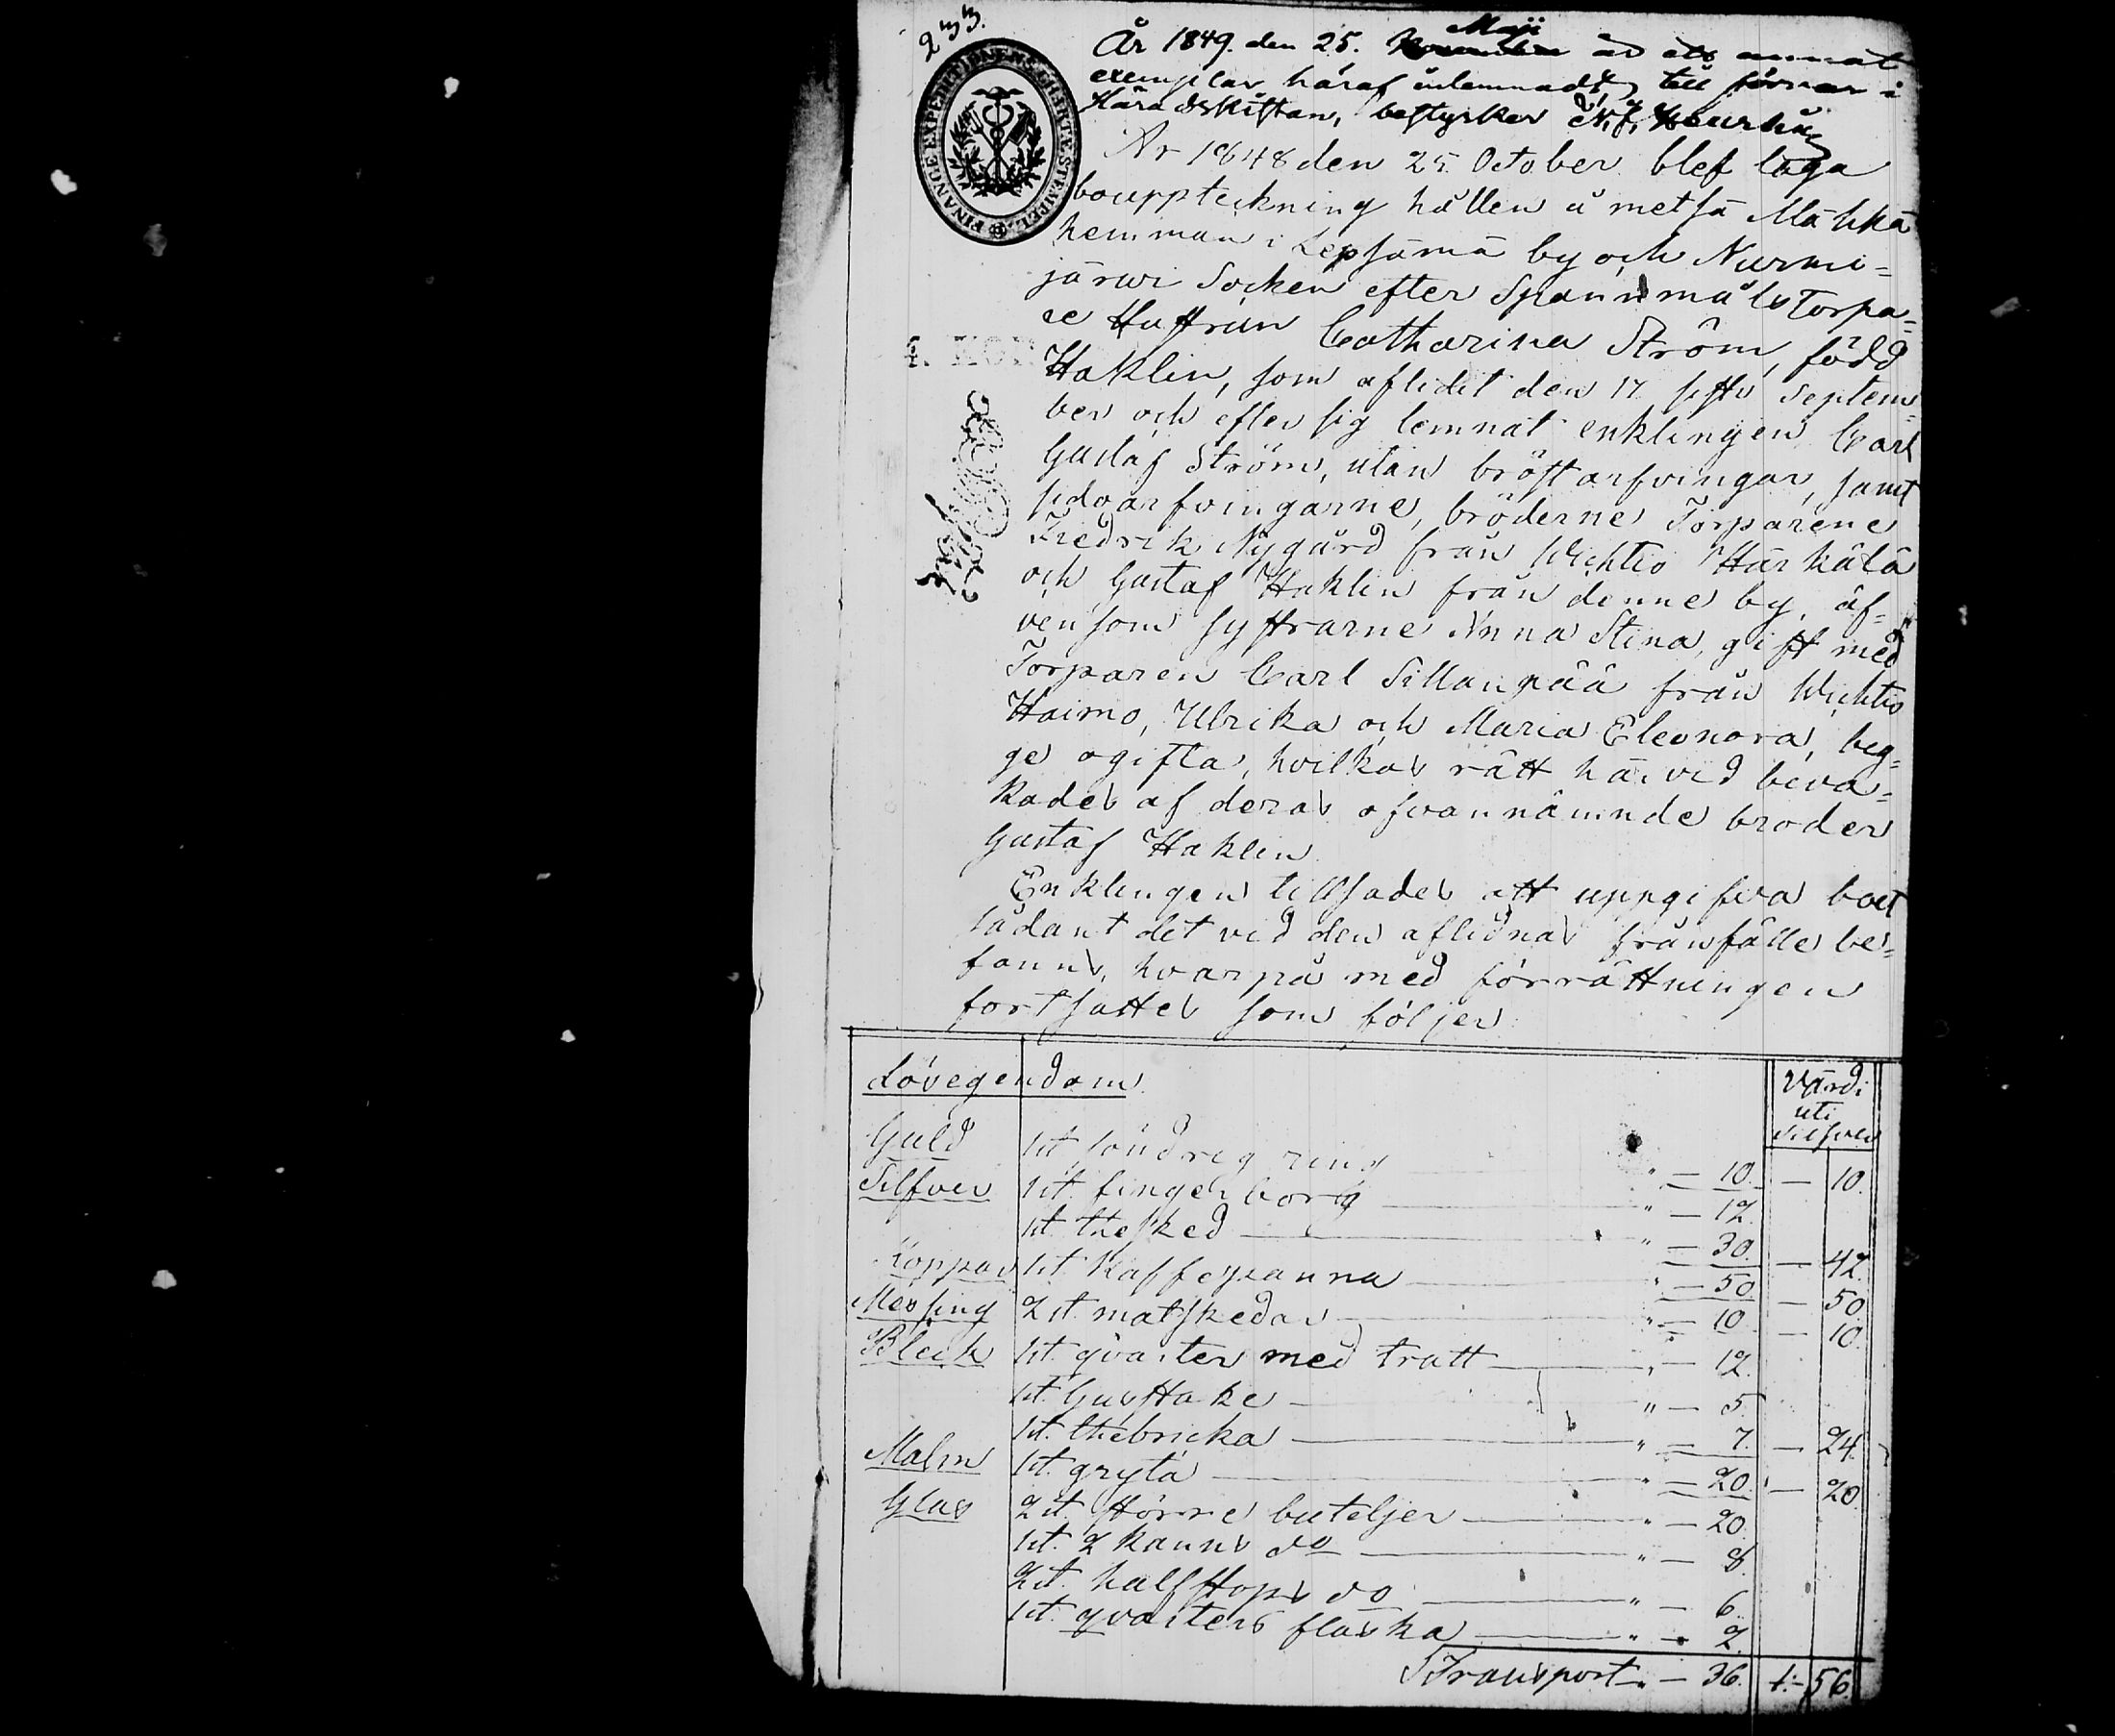 233.
År 1849. den 25. Maji är ett annat
exemplar häraf inlemnadt, till förvar i
Häradskistan, bestyrker
FINANCE EXPEDITIONENS CHARTÆ STEMPEL
År 1848 den 25. October blef laga
bouppteckning hållen å Metsä Mä
hemman i Lepsämä by och Nurmi=
järvi Socken efter Spannmåls Torpa=
re Hustrun Catharina Ström, född
4. KOP
Haklin, som aflidit den 17 sistl. Septem=
ber och efter sig lemnat enklingen Carl
Gustaf Ström, utan bröstarfvingar, samt
sidoarfvingarne, bröderne Torparene
Fredrik Nygård från Wichtis Härkälä
och Gustaf Haklin från denne by, äf=
vensom systrarne Anna Stina, gift med
Torparen Carl Sillanpää från Wichtis
Haimo, Ulrika och Maria Eleonora, beg=
ge ogifta, hvilkas rätt härvid beva=
kades af deras ofvannämnde broder
Gustaf Haklin.
Enklingen tillsades att uppgifva boet
sådant det vid den aflidnas frånfälle be=
fanns, hvarpå med förrättningen
fortsattes som följer:
Lösegendom. Värde uti Silfver
Guld 1 st. söndrig ring " — 10. — 10.
Silfver 1 st. fingerborg " — 12.
1 st. thesked " — 30. — 42.
Koppar 1 st. Kaffepanna " — 50 — 50
Messing 2 st. matskedar " — 10 — 10.
Bleck 1 st. qvarter med tratt " — 12.
1 st. ljusstake " — 5.
1 st. thébricka " — 7. — 24.
Malm 1 st. gryta " — 20. — 20.
Glas 2 st. större buteljer " — 20.
1 st. 2 kanns do " — 8.
2 st. halfstops do " — 6.
1 st. qvarters flaska " — 2.
Transport " — 36. 1.— 56.